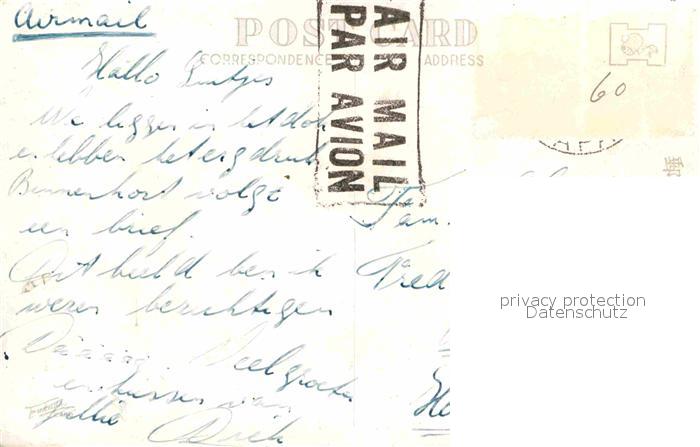 Airmail
POST CARD
CORRESPONDENCE ADDRESS
AIR MAIL
PAR AVION
60
Hallo
We liggen in het dok
en hebben het erg druk
Binnenkort volgt
een brief.
Dit beeld ben ik
wezen bezichtigen
Veel groeten
en kussen van
jullie
Fam.
Fred
privacy protection
Datenschutz